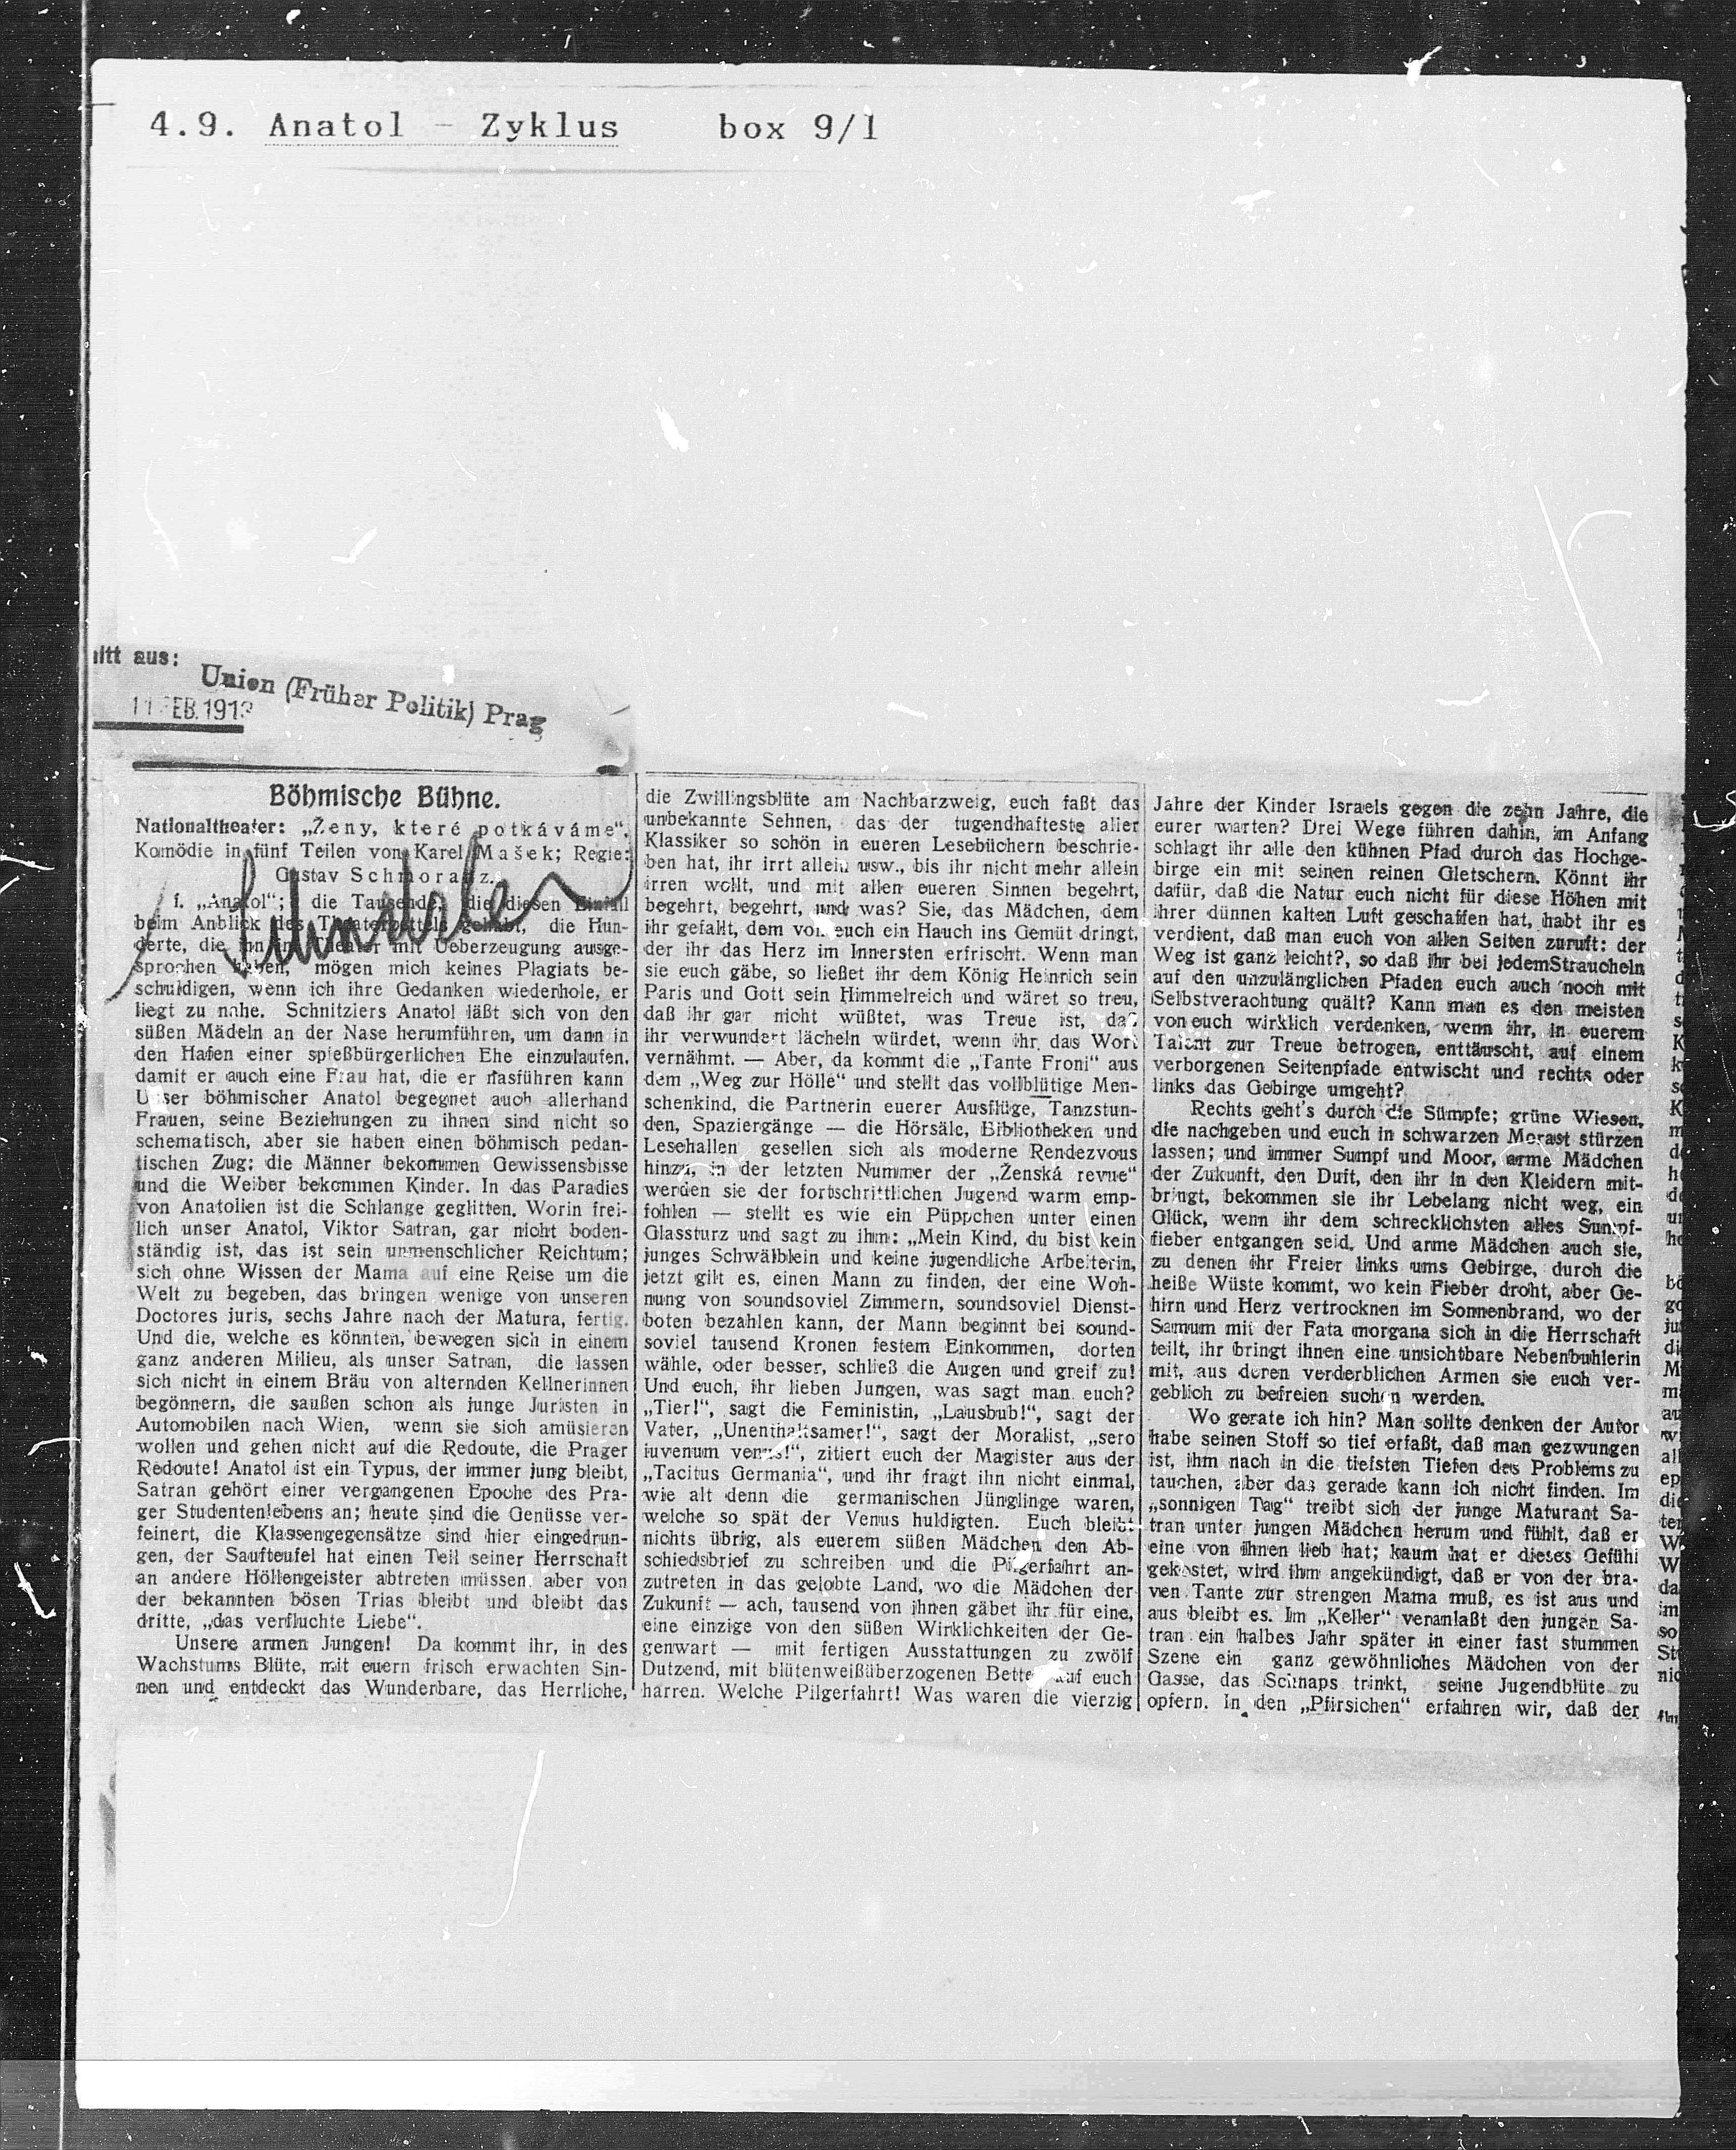 4.9. Anatol - Zyklus box 9/1
nitt aus:
Union (Früher Politik) Prag
11 FEB. 191
Böhmische Bühne.
Nationaltheater: „Ženy, které potkáváme“,
Komödie in fünf Teilen von Karel Mašek; Regie:
Gustav Schmoranz.
f. „Anatol“; die Tausende, die diesen Einfall
beim Anblick des Theaterzettels gehabt, die Hun-
derte, die ihn im Theater mit Ueberzeugung ausge-
sprochen haben, mögen mich keines Plagiats be-
schuldigen, wenn ich ihre Gedanken wiederhole, er
liegt zu nahe. Schnitzlers Anatol läßt sich von den
süßen Mädeln an der Nase herumführen, um dann in
den Hafen einer spießbürgerlichen Ehe einzulaufen,
damit er auch eine Frau hat, die er nasführen kann
Unser böhmischer Anatol begegnet auch allerhand
Frauen, seine Beziehungen zu ihnen sind nicht so
schematisch, aber sie haben einen böhmisch pedan-
tischen Zug: die Männer bekommen Gewissensbisse
und die Weiber bekommen Kinder. In das Paradies
von Anatolien ist die Schlange geglitten. Worin frei-
lich unser Anatol, Viktor Satran, gar nicht boden-
ständig ist, das ist sein unmenschlicher Reichtum;
sich ohne Wissen der Mama auf eine Reise um die
Welt zu begeben, das bringen wenige von unseren
Doctores juris, sechs Jahre nach der Matura, fertig.
Und die, welche es könnten, bewegen sich in einem
ganz anderen Milieu, als unser Satran, die lassen
sich nicht in einem Bräu von alternden Kellnerinnen
begönnern, die saußen schon als junge Juristen in
Automobilen nach Wien, wenn sie sich amüsieren
wollen und gehen nicht auf die Redoute, die Prager
Redoute! Anatol ist ein Typus, der immer jung bleibt,
Satran gehört einer vergangenen Epoche des Pra-
ger Studentenlebens an; heute sind die Genüsse ver-
feinert, die Klassengegensätze sind hier eingedrun-
gen, der Saufteufel hat einen Teil seiner Herrschaft
an andere Höllengeister abtreten müssen, aber von
der bekannten bösen Trias bleibt und bleibt das
dritte, „das verfluchte Liebe“.
Unsere armen Jungen! Da kommt ihr, in des
Wachstums Blüte, mit euern frisch erwachten Sin-
nen und entdeckt das Wunderbare, das Herrliche,
die Zwillingsblüte am Nachbarzweig, euch faßt das
unbekannte Sehnen, das der tugendhafteste aller
Klassiker so schön in eueren Lesebüchern beschrie-
ben hat, ihr irrt allein usw., bis ihr nicht mehr allein
irren wollt, und mit allen eueren Sinnen begehrt,
begehrt, begehrt, und was? Sie, das Mädchen, dem
ihr gefallt, dem von euch ein Hauch ins Gemüt dringt,
der ihr das Herz im Innersten erfrischt. Wenn man
sie euch gäbe, so ließet ihr dem König Heinrich sein
Paris und Gott sein Himmelreich und wäret so treu,
daß ihr gar nicht wüßtet, was Treue ist, daß
ihr verwundert lächeln würdet, wenn ihr das Wort
vernähmt. — Aber, da kommt die „Tante Froni“ aus
dem „Weg zur Hölle“ und stellt das vollblütige Men-
schenkind, die Partnerin euerer Ausflüge, Tanzstun-
den, Spaziergänge — die Hörsäle, Bibliotheken und
Lesehallen gesellen sich als moderne Rendezvous
hinzu, in der letzten Nummer der „Ženská revue“
werden sie der fortschrittlichen Jugend warm emp-
fohlen — stellt es wie ein Püppchen unter einen
Glassturz und sagt zu ihm: „Mein Kind, du bist kein
junges Schwälblein und keine jugendliche Arbeiterin,
jetzt gilt es, einen Mann zu finden, der eine Woh-
nung von soundsoviel Zimmern, soundsoviel Dienst-
boten bezahlen kann, der Mann beginnt bei sound-
soviel tausend Kronen festem Einkommen, dorten
wähle, oder besser, schließ die Augen und greif zu!
Und euch, ihr lieben Jungen, was sagt man euch?
„Tier!“, sagt die Feministin, „Lausbub!“, sagt der
Vater, „Unenthaltsamer!“, sagt der Moralist, „sero
iuvenum venus!“, zitiert euch der Magister aus der
„Tacitus Germania“, und ihr fragt ihn nicht einmal,
wie alt denn die germanischen Jünglinge waren,
welche so spät der Venus huldigten. Euch bleibt
nichts übrig, als euerem süßen Mädchen den Ab-
schiedsbrief zu schreiben und die Pilgerfahrt an-
zutreten in das gelobte Land, wo die Mädchen der
Zukunft — ach, tausend von ihnen gäbet ihr für eine,
eine einzige von den süßen Wirklichkeiten der Ge-
genwart — mit fertigen Ausstattungen zu zwölf
Dutzend, mit blütenweißüberzogenen Betten auf euch
harren. Welche Pilgerfahrt! Was waren die vierzig
Jahre der Kinder Israels gegen die zehn Jahre, die
eurer warten? Drei Wege führen dahin, im Anfang
schlagt ihr alle den kühnen Pfad durch das Hochge-
birge ein mit seinen reinen Gletschern. Könnt ihr
dafür, daß die Natur euch nicht für diese Höhen mit
ihrer dünnen kalten Luft geschaffen hat, habt ihr es
verdient, daß man euch von allen Seiten zuruft: der
Weg ist ganz leicht?, so daß ihr bei jedem Straucheln
auf den unzulänglichen Pfaden euch auch noch mit
Selbstverachtung quält? Kann man es den meisten
von euch wirklich verdenken, wenn ihr, in euerem
Talent zur Treue betrogen, enttäuscht, auf einem
verborgenen Seitenpfade entwischt und rechts oder
links das Gebirge umgeht?
Rechts geht's durch die Sümpfe; grüne Wiesen,
die nachgeben und euch in schwarzen Morast stürzen
lassen; und immer Sumpf und Moor, arme Mädchen
der Zukunft, den Duft, den ihr in den Kleidern mit-
bringt, bekommen sie ihr Lebelang nicht weg, ein
Glück, wenn ihr dem schrecklichsten alles Sumpf-
fieber entgangen seid. Und arme Mädchen auch sie,
zu denen ihr Freier links ums Gebirge, durch die
heiße Wüste kommt, wo kein Fieber droht, aber Ge-
hirn und Herz vertrocknen im Sonnenbrand, wo der
Samum mit der Fata morgana sich in die Herrschaft
teilt, ihr bringt ihnen eine unsichtbare Nebenbuhlerin
mit, aus deren verderblichen Armen sie euch ver-
geblich zu befreien suchen werden.
Wo gerate ich hin? Man sollte denken der Autor
habe seinen Stoff so tief erfaßt, daß man gezwungen
ist, ihm nach in die tiefsten Tiefen des Problems zu
tauchen, aber das gerade kann ich nicht finden. Im
„sonnigen Tag“ treibt sich der junge Maturant Sa-
tran unter jungen Mädchen herum und fühlt, daß er
eine von ihnen lieb hat; kaum hat er dieses Gefühl
gekostet, wird ihm angekündigt, daß er von der bra-
ven Tante zur strengen Mama muß, es ist aus und
aus bleibt es. Im „Keller“ veranlaßt den jungen Sa-
tran ein halbes Jahr später in einer fast stummen
Szene ein ganz gewöhnliches Mädchen von der
Gasse, das Schnaps trinkt, seine Jugendblüte zu
opfern. In den „Pfirsichen“ erfahren wir, daß der